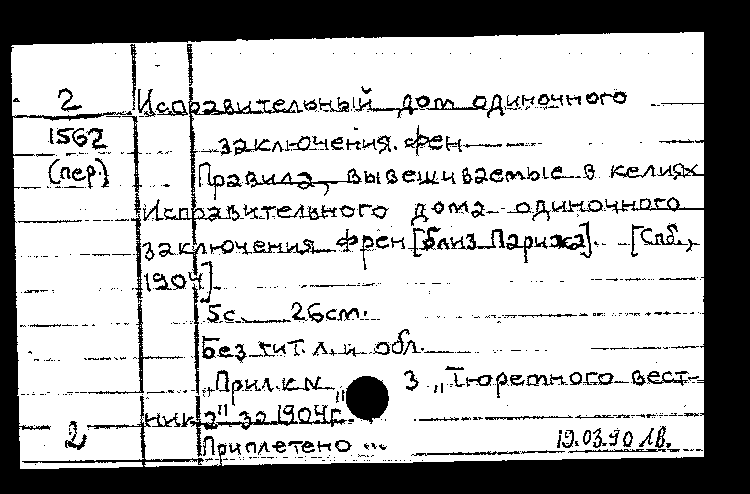 2 Исправительный дом одиночного
1562 заключения. Френ
(пер.) Правила, вывешиваемые в келиях
Исправительного дома одиночного
заключения Френ [близ Парижа]. [Спб.,
1904].
5с. 26см.
Без тит. л. и обл.
„Прил. к N „ 3 „Тюремного вест-
ника" за 1904г.
2 Приплетено ...
19.03.90 ЛВ.